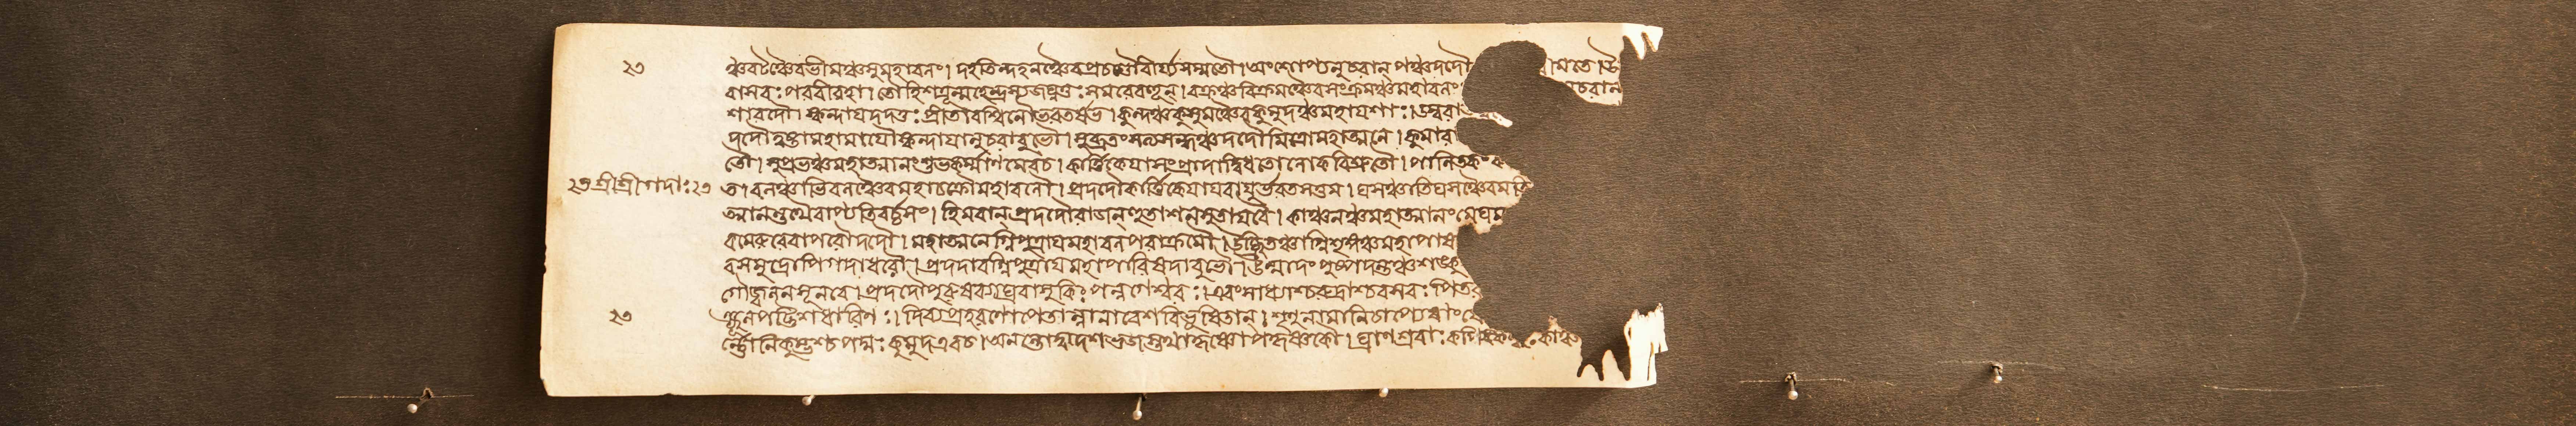 ২৩ ঞ্চবটঞ্চৈবভীমঞ্চসুমহাবলং। দহতিন্দহনঞ্চৈবপ্রচণ্ডৌবীর্য্যসম্মতৌ। অংশোপ্যনুচরান্ পঞ্চদদৌ মতে। উ
বাসবঃপরবীরহা। তৌহিশত্রূন্মহেন্দ্রস্যজঘ্নতুঃসমরেবহূন্। চক্রঞ্চবিক্রমঞ্চৈবসংক্রমঞ্চমহাবলং চরান
শস্বরদৌ। স্কন্দায়দদতুঃপ্রীতাবশ্বিনৌভরতর্ষভ। কুন্দঞ্চকুসুমঞ্চৈবকুমুদঞ্চমহাযশাঃ। ডম্বরা
দদৌত্বষ্টামহামায়ৌস্কন্দায়ানুচরাবুভৌ। সুব্রতংসত্যসন্ধঞ্চদদৌমিত্রোমহাত্মনে। কুমার
তৌ। সুপ্রভঞ্চমহাত্মানংশুভকর্ম্মাণমেবচ। কার্ত্তিকেয়াসংপ্রাদাদ্বিধতোলোকবিশ্রুতৌ। পালিতকং
২৩শ্রীশ্রীগদাঃ২৩ ত। বলঞ্চাতিবলঞ্চৈবমহাচক্রৌমহাবলৌ। প্রদদৌকার্ত্তিকেয়ায়বায়ুর্ভরতসত্তম। ঘসঞ্চাতিঘসঞ্চৈবমতি
ত্মানন্তথৈবাপ্যতিবর্চ্চসং। হিমবান্প্রদদৌরাজন্হুতাশনসুতায়বৈ। কাঞ্চনঞ্চমহাত্মানংমেঘম
বমেরুরেবাপরৌদদৌ। মহাত্মনেগ্নিপুত্রায়মহাবলপরাক্রমৌ। উচ্ছ্রিতঞ্চাগ্নিশৃঙ্গঞ্চমহাপাষ
বসমুদ্রোপিগদাধরৌ। প্রদদাবগ্নিপুত্রায়মহাপারিষদাবুভৌ। উন্মাদংপুষ্পদন্তঞ্চশঙ্কু
গৌজ্বলনসূনবে। প্রদদৌপুরুষব্যাঘ্রবাসুকিঃপন্নগেশ্বরঃ। এবংসাধ্যাশ্চরুদ্রাশ্চবসবঃপিতর
২৩ ঞ্ছূলপট্টিশধারিণঃ। দিব্যপ্রহরণোপেতান্নানাবেশবিভূষিতান্। শৃণুনামানিচাপ্যেষাং
র্ন্নোনিকুম্ভশ্চপদ্মঃকুমুদএবচ। অনন্তোদ্বাদশভুজস্তথাকৃষ্ণোপকৃষ্ণকৌ। ঘ্রাণশ্রবাঃকপিস্কন্ধঃকাঞ্চ